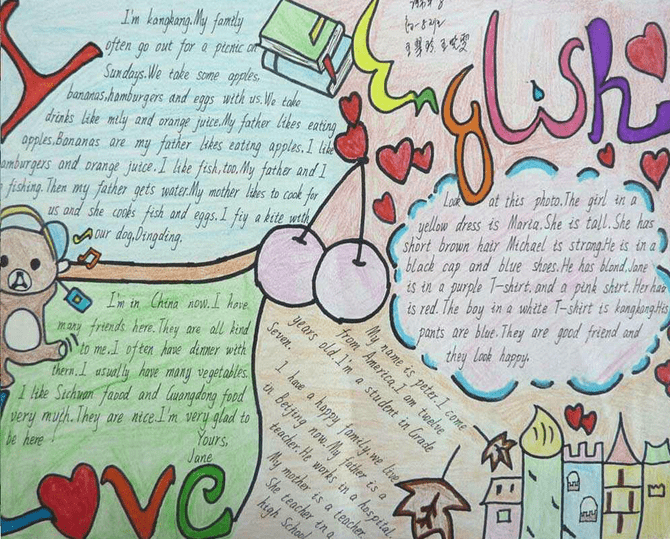 I'm kangkang.My family
often go out for a picnic on
Sundays.We take some apples,
bananas.hamburgers and eggs with us.We take
drinks like mily and orange juice.My father likes eating
apples.Bananas are my father likes eating apples.I like
hamburgers and orange juice.I like fish,too.My father and I
fishing.Then my father gets water.My mother likes to cook for
us and she cooks fish and eggs.I fiy a kite with
our dog,Dingding.
English
Look at this photo.The girl in a
yellow dress is Maria.She is tall.She has
short brown hair Michael is strong.He is in a
black cap and blue shoes.He has blond.Jane
is in a purple T-shirt.and a pink shirt.Her hair
is red.The boy in a white T-shirt is kangkong.His
pants are blue.They are good friend and
they look happy.
I'm in China now.I have
many friends here.They are all kind
to me.I often have dinner with
them.I usually have many vegetables.
I like Sichuan faood and Guangdong food
very much.They are nice.I'm very glad to
be here
Yours,
Jane
My name is peter.I come
from America.I am twelve
years old.I'm a student in Grade
Seven.
I have a happy family.we live
in Beijing now.My father is a
teacher.He works in a hospital
My mother is a teocher
She teacher in a
high School
Love